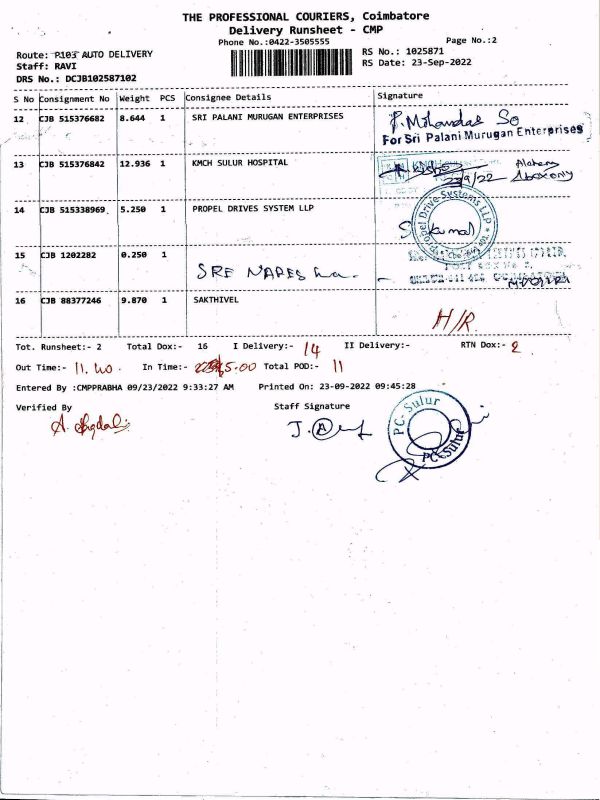 THE PROFESSIONAL COURIERS, Coimbatore
Delivery Runsheet - CMP
Phone No.:0422-3505555
Page No.:2
Route: P103 AUTO DELIVERY
RS No.: 1025871
Staff: RAVI
RS Date: 23-Sep-2022
DRS No.: DCJB102587102
S No Consignment No Weight PCS Consignee Details Signature
12 CJB 515376682 8.644 1 SRI PALANI MURUGAN ENTERPRISES
For Sri Palani Murugan Enterprises
13 CJB 515376842 12.936 1 KMCH SULUR HOSPITAL
23/9/22
14 CJB 515338969 5.250 1 PROPEL DRIVES SYSTEM LLP
Propel Drive Systems LLP
15 CJB 1202282 0.250 1
SRE NARES
16 CJB 88377246 9.870 1 SAKTHIVEL
H/R
Tot. Runsheet:- 2 Total Dox:- 16 I Delivery:- 14 II Delivery:- RTN Dox:- 2
Out Time:- 11.40 In Time:- 5.00 Total POD:- 11
Entered By :CMPPRABHA 09/23/2022 9:33:27 AM Printed On: 23-09-2022 09:45:28
Verified By Staff Signature
PC-Sulur
PC-Sulur